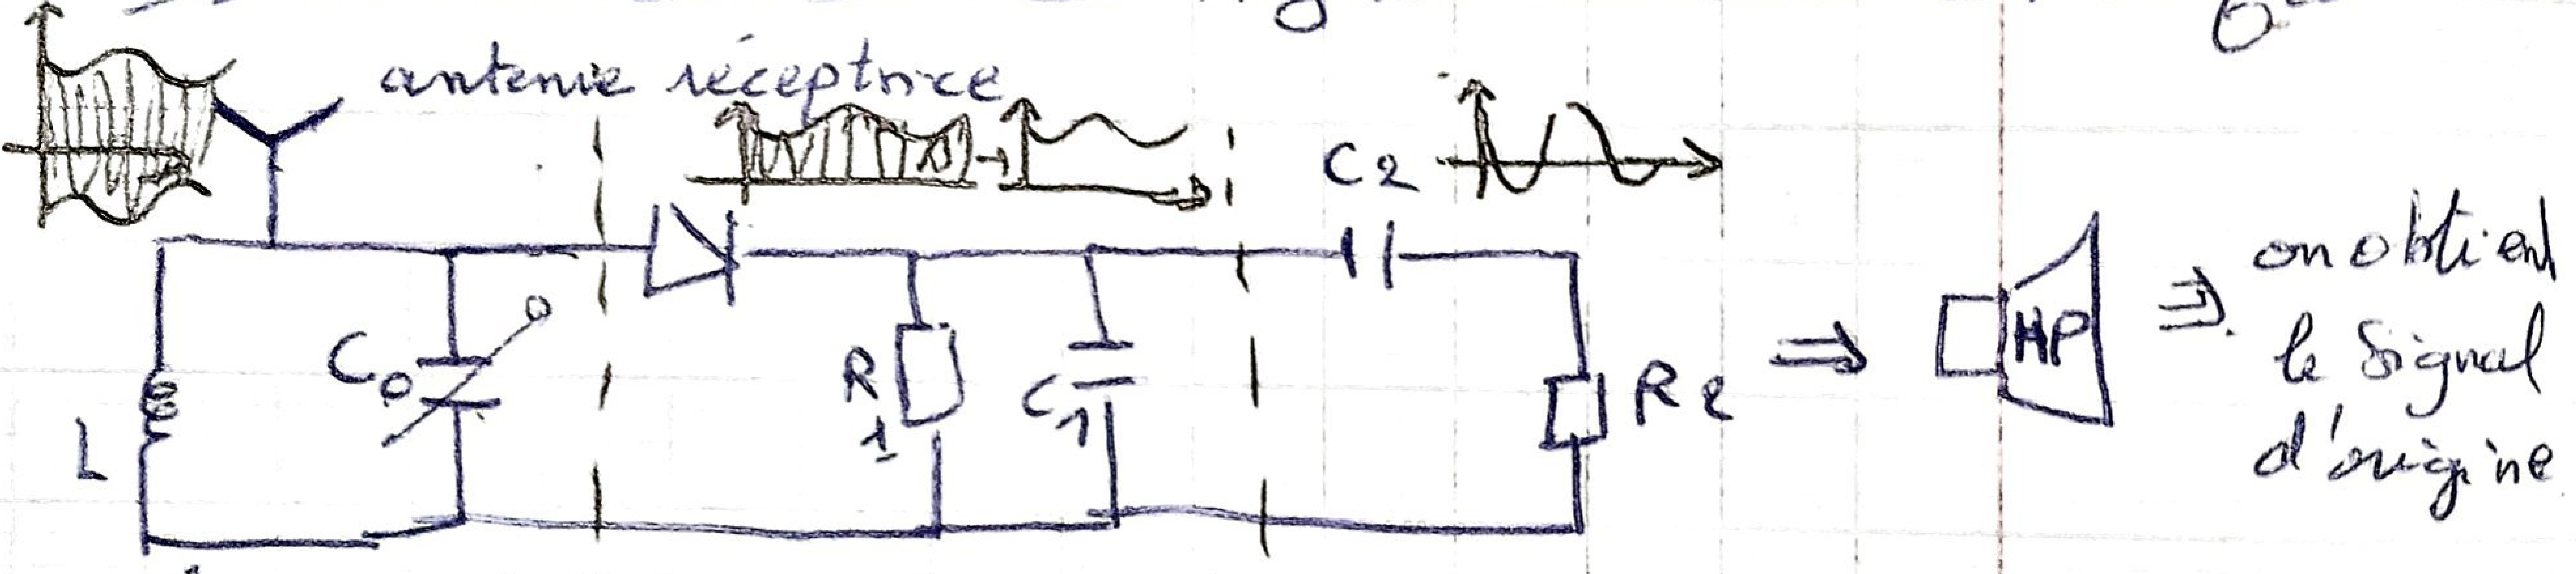 antenne réceptrice
C2
C0
L
R1
C1
R2
HP
on obtient
le signal
d'origine